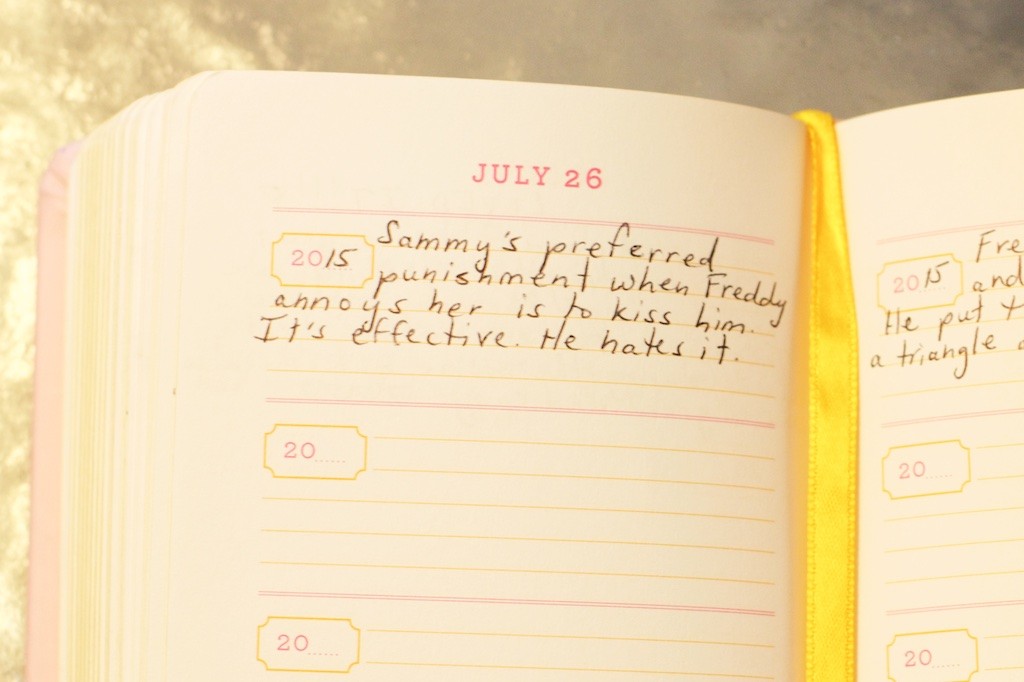 JULY 26
2015 Sammy's preferred
punishment when Freddy
annoys her is to kiss him.
It's effective. He hates it.
20
20
2015
and
He put
a triangle
20
20